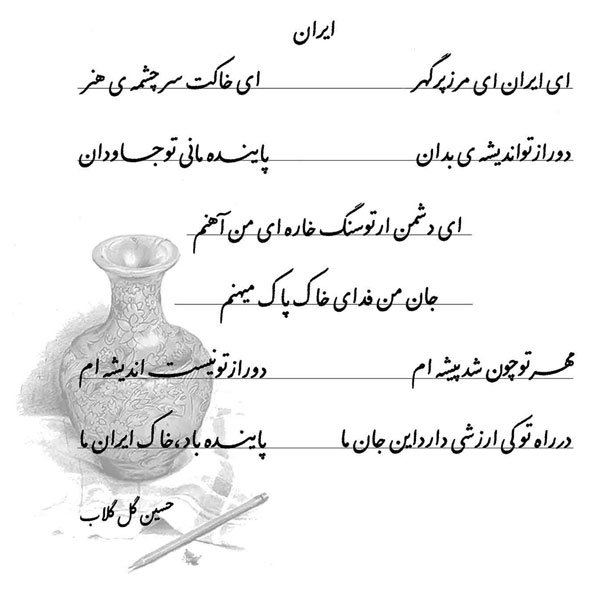 ایران
ای ایران ای مرز پرگهر ای خاکت سرچشمه ی هنر
دور از تو اندیشه ی بدان پاینده مانی تو جاودان
ای دشمن ارتو سنگ خاره ای من آهنم
جان من فدای خاک پاک میهنم
مهر تو چون شد پیشه ام دور از تو نیست اندیشه ام
در راه تو کی ارزشی دارد این جان ما پاینده باد، خاک ایران ما
حسین گل گلاب